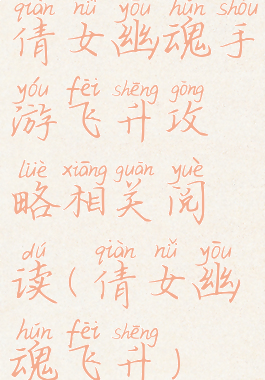 qiàn nǚ yōu hún shǒu
倩女幽魂手
yóu fēi shēng gōng
游飞升攻
lüè xiāng guān yuè
略相关阅
dú qiàn nǚ yōu
读(倩女幽
hún fēi shēng
魂飞升)